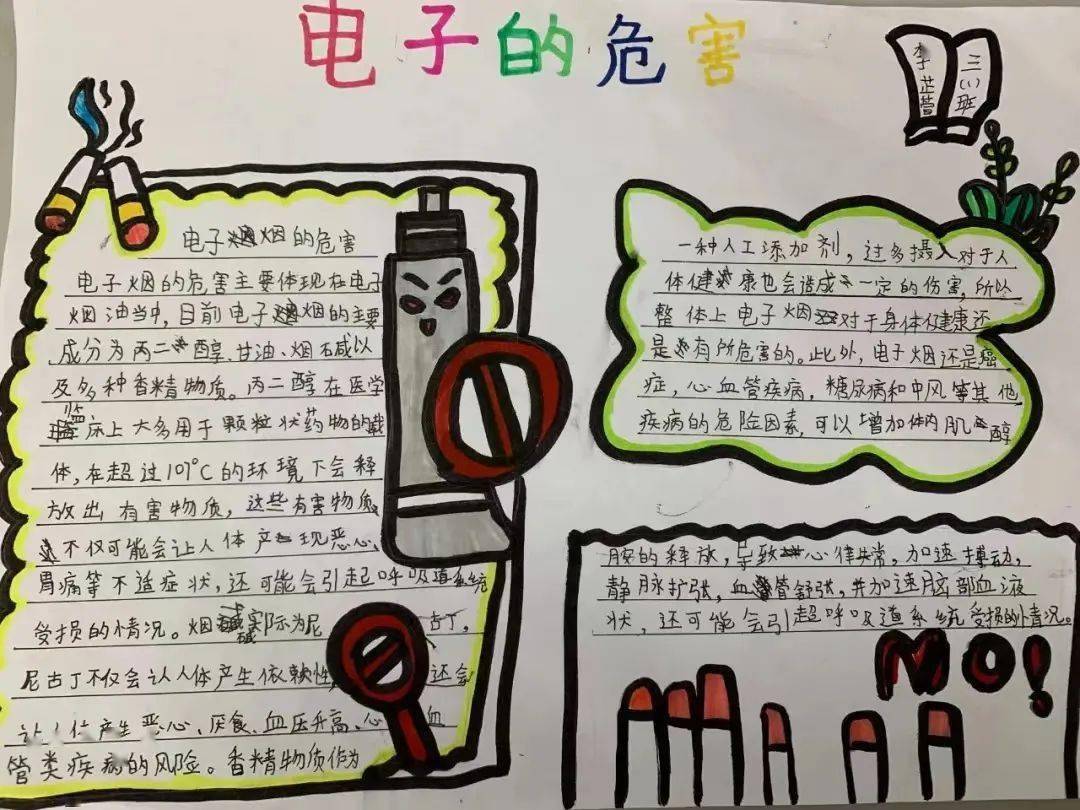 电子的危害
三(1)班
李芷萱
电子烟的危害
电子烟的危害主要体现在电子
烟油当中,目前电子烟的主要
成分为丙二醇、甘油、烟碱以
及多种香精物质。丙二醇在医学
监床上大多用于颗粒状药物的载
体,在超过107°C的环境下会释
放出有害物质,这些有害物质
不仅可能会让人体产现恶心、
胃痛等不适症状,还可能会引起呼吸道系统
受损的情况。烟碱实际为尼古丁,
尼古丁不仅会让人体产生依赖性,还会
让人体产生恶心、厌食、血压升高、心血
管类疾病的风险。香精物质作为
一种人工添加剂,过多摄入对于人
体健康也会造成一定的伤害,所以
整体上电子烟对于身体健康还
是有所危害的。此外,电子烟还是癌
症,心血管疾病,糖尿病和中风等其他
疾病的危险因素,可以增加体内肌醇
胺的释放,导致心律失常,加速搏动,
静脉扩张,血管舒张,并加速脑部血液
状,还可能会引起呼吸道系统受损的情况。
NO!